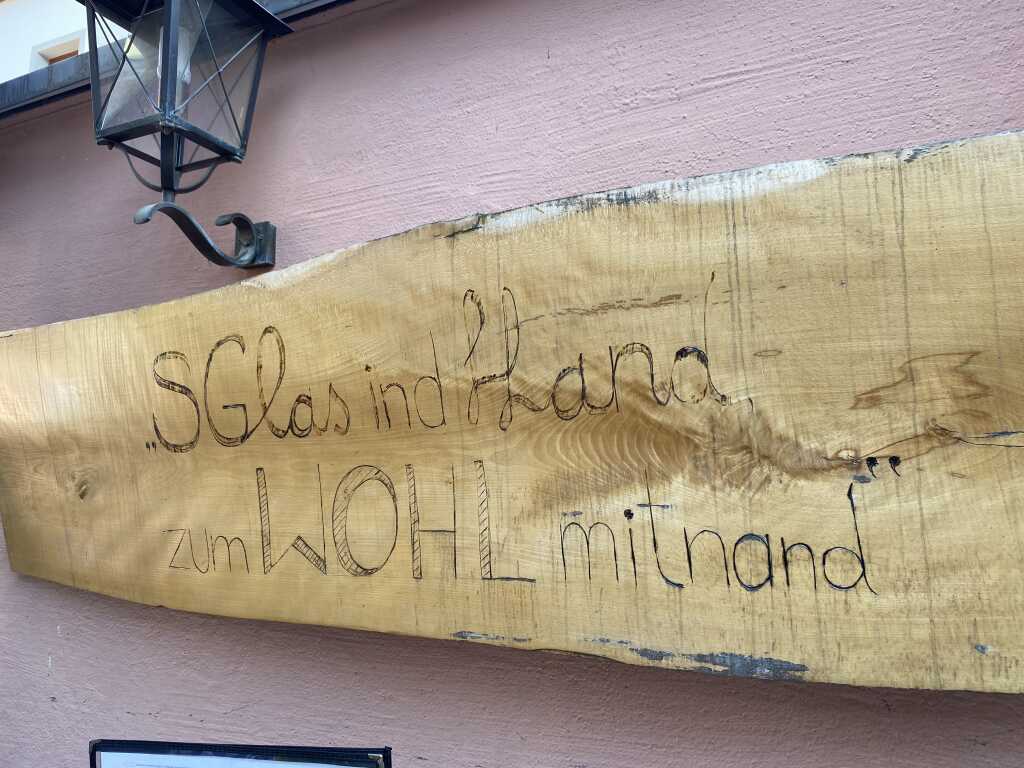 „SGlas ind Hand,
zum WOHL mitnand"